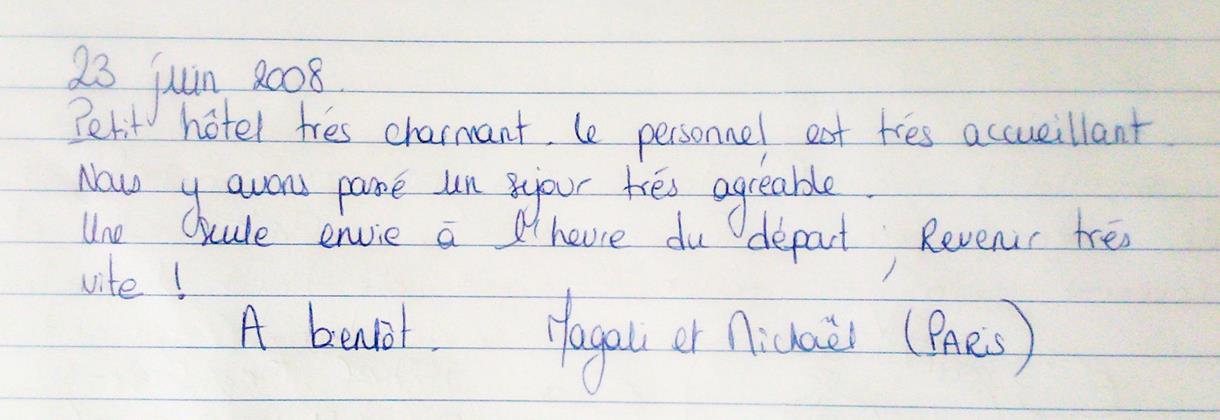 23 juin 2008.
Petit hôtel trés charmant. Le personnel est trés accueillant.
Nous y avons passé un séjour trés agréable.
Une seule envie à l'heure du départ ; Revenir trés
vite !
A bientôt. Magali et Mickaël (PARIS)